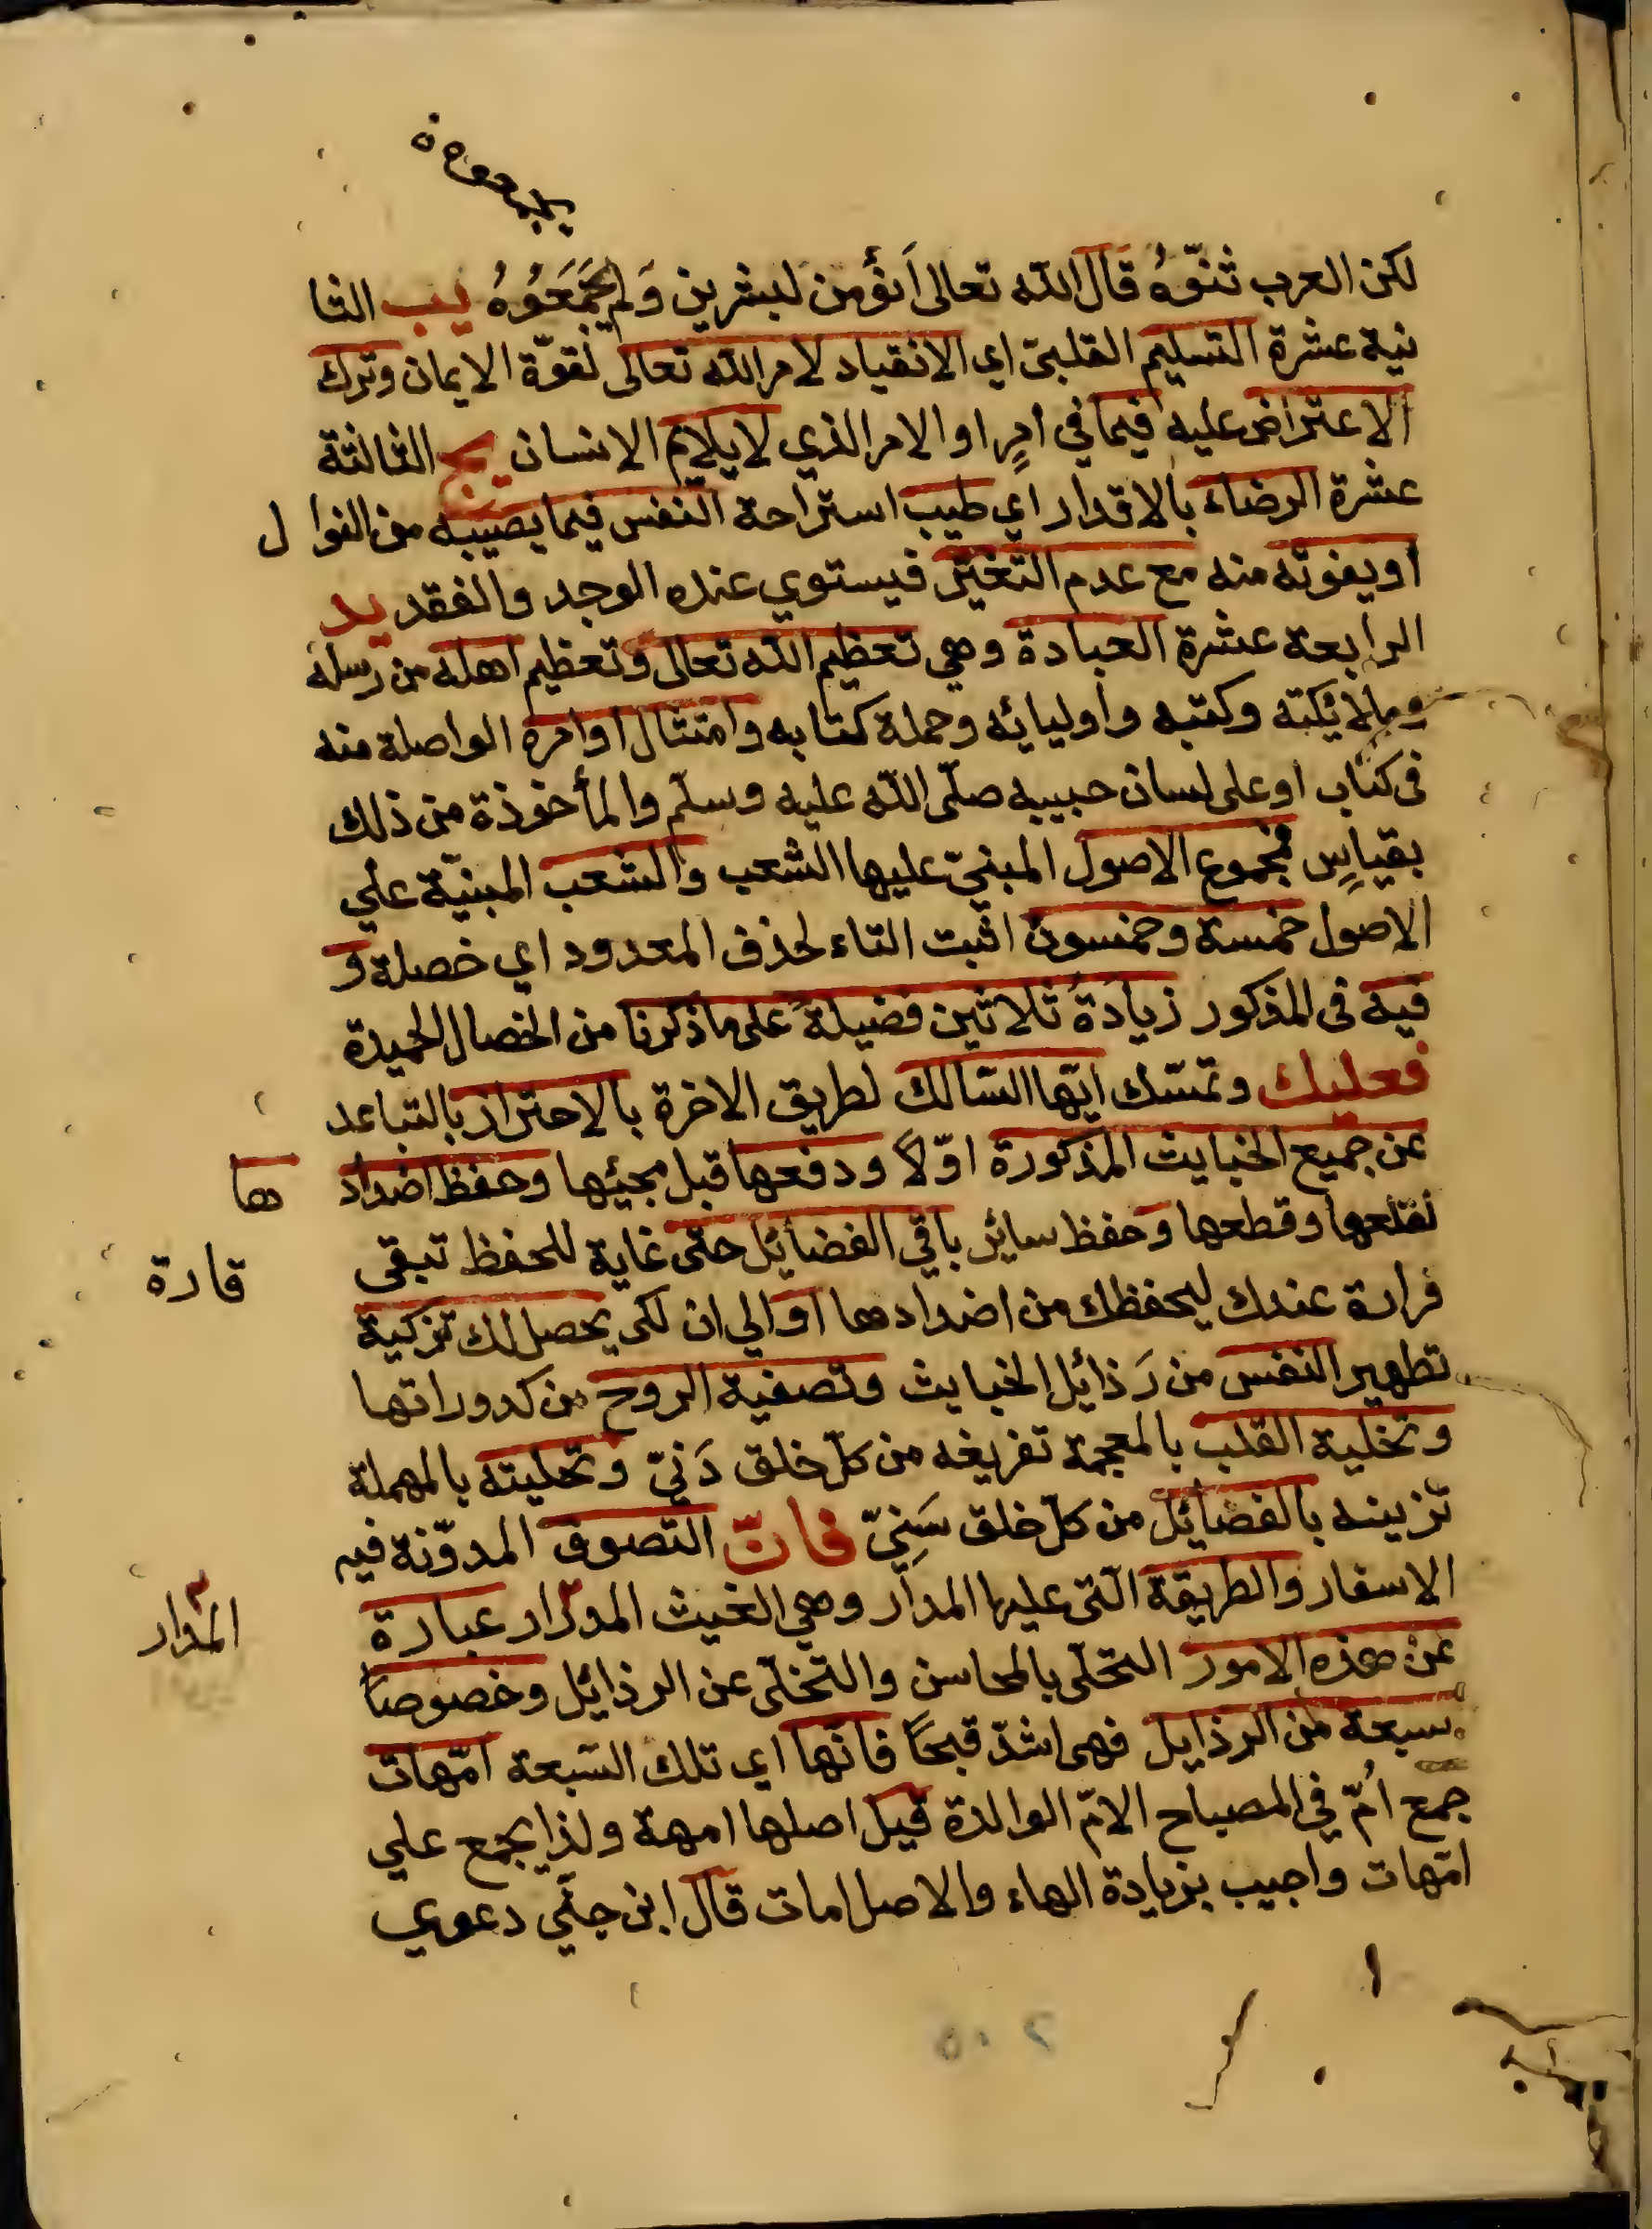 لكن العرب ثنّوهُ قال الله تعالى أنؤمن لبشرين وَلم يَجمَعُوهُ يب الثا
نية عشرة التسليم القلبيّ اي الانقياد لامر الله تعالى لقوّة الايمان وترك
الاعتراض عليه فيما في امرٍ او الامر الذي لا يلايم الانسان يج الثالثة
عشرة الرضاء بالاقدار اي طيب استراحة النفس فيما يصيبه من النوال
او يفوته منه مع عدم التغيّر فيستوي عنده الوجد والفقد يد
الرابعة عشرة العبادة وهي تعظيم الله تعالى وتعظيم اهله من رسله
وملائكته وكتبه واوليائه وحملة كتابه وامتثال اوامره الواصلة منه
فى كتاب او على لسان حبيبه صلّى الله عليه وسلّم والمأخوذة من ذلك
بقياسٍ فمجموع الاصول المبنيّ عليها الشعب والشعب المبنيّة علي
الاصول خمسة وخمسون اثبت التاء لحذف المعدود اي خصلة و
فيه فى المذكور زيادةُ ثلاثين فضيلةً على ما ذكرنا من الخصال الحميدة
فعليك وتمسّك ايّها السّالك لطريق الاخرة بالاحتراز بالتباعد
عن جميع الخبايث المذكورة اوّلاً ودفعها قبل مجيئها وحفظ اضداد ها
لقلعها وقطعها وحفظ سائر باقي الفضائل حتى غاية للحفظ تبقى
قرارة عندك ليحفظك من اضدادها او الي ان لكى يحصل لك تزكية
قارة
تطهير النفس من رَذائل الخبايث وتصفية الروح من كدوراتها
وتخلية القلب بالمعجمة تفريغه من كلّ خلق دَنيّ وتحليته بالمهملة
تزيينه بالفضائل من كلّ خلق سَنِيّ فانّ التصوف المدوّنة فيه
الاسفار والطريقة التى عليها المدار وهي الغيث المدرار عبارة
المدار
عن هذه الامور التحلّى بالمحاسن والتخلّى عن الرذائل وخصوصاً
سبعة من الرذايل فهى اشدّ قبحاً فانّها اي تلك السّبعة امّهات
جمع اُمّ في المصباح الامّ الوالدة قيل اصلها امهة ولذا يجمع علي
امّهات واجيب بزيادة الهاء والاصل امات قال ابن جنّي دعوي